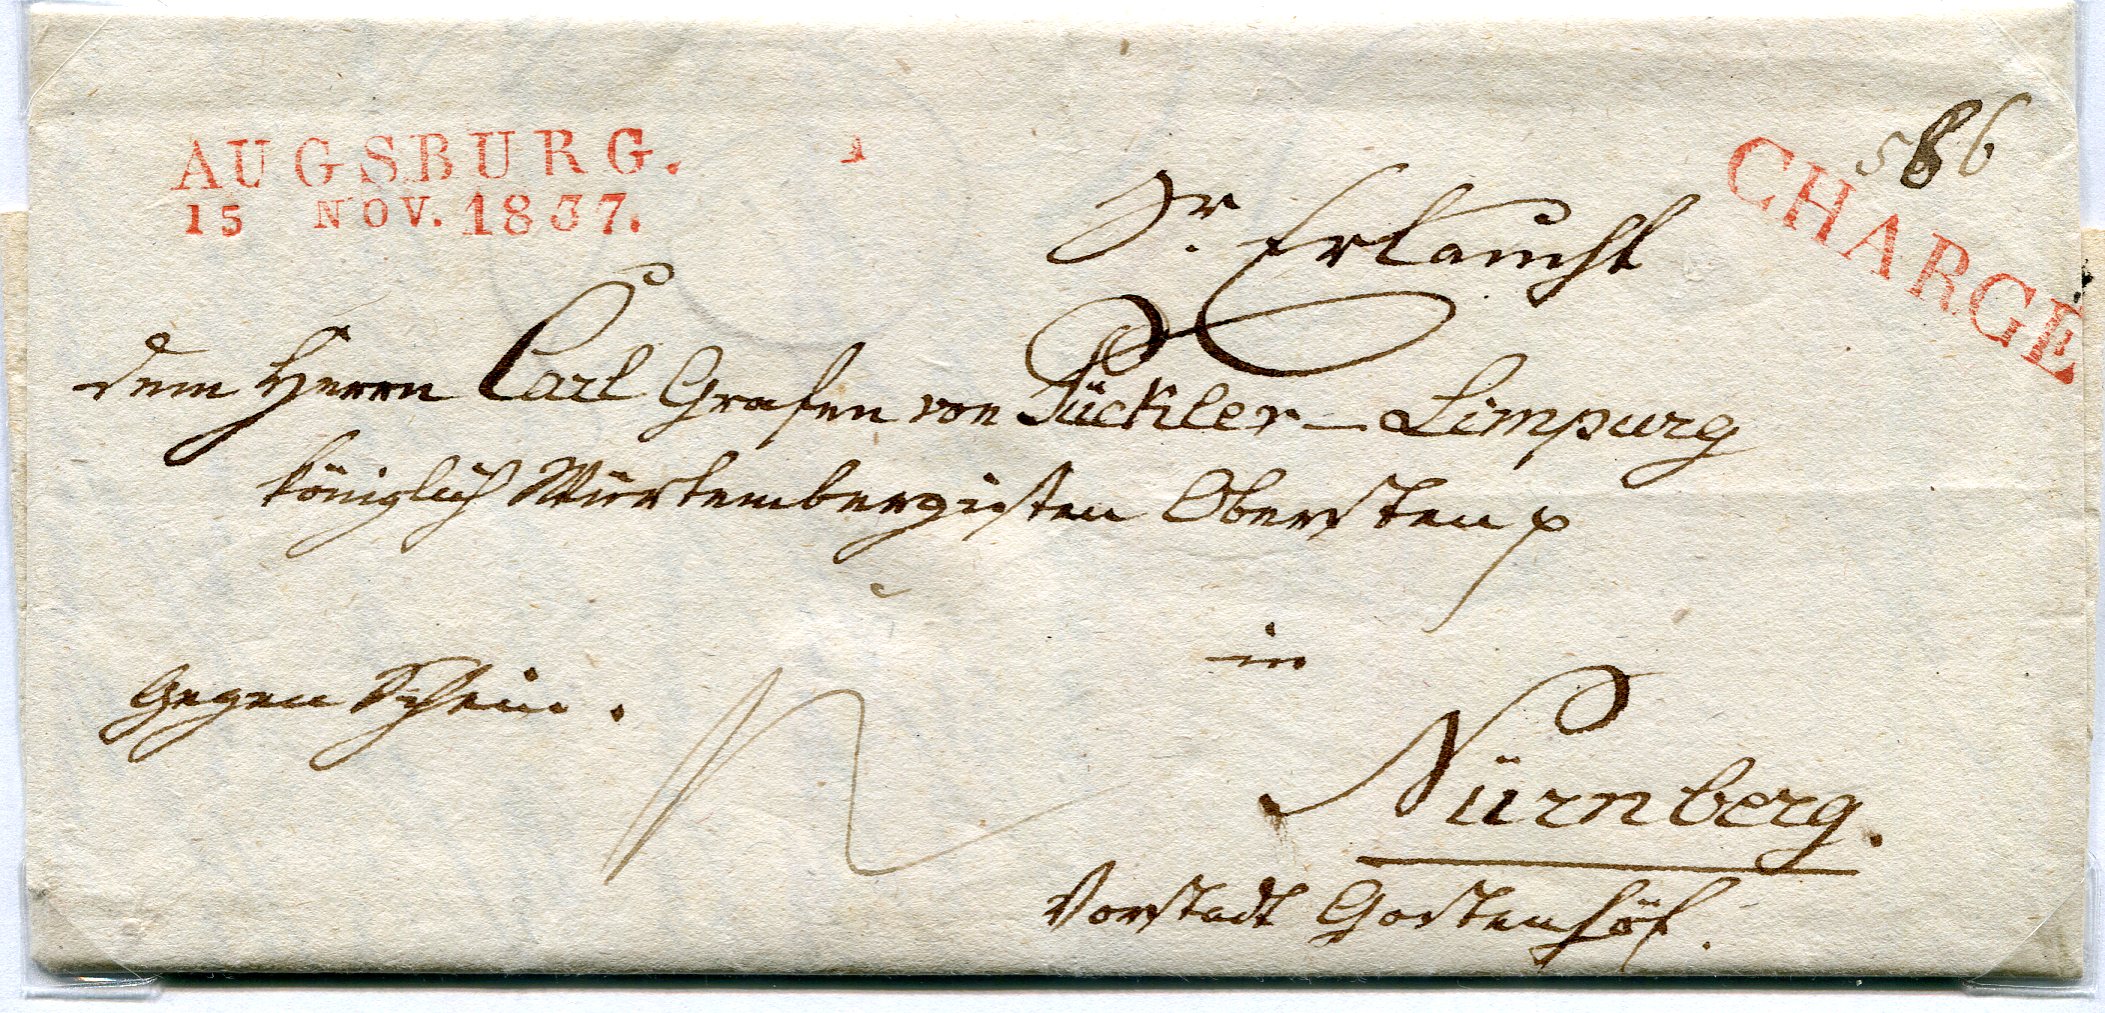 AUGSBURG.
15 NOV. 1837.
586
CHARGÉ
Sr. Erlaucht
dem Herrn Carl Grafen von Pückler-Limpurg
königlich Würtembergischen Obersten
in
Nürnberg.
Vorstadt Gostenhof.
Gegen Schein.